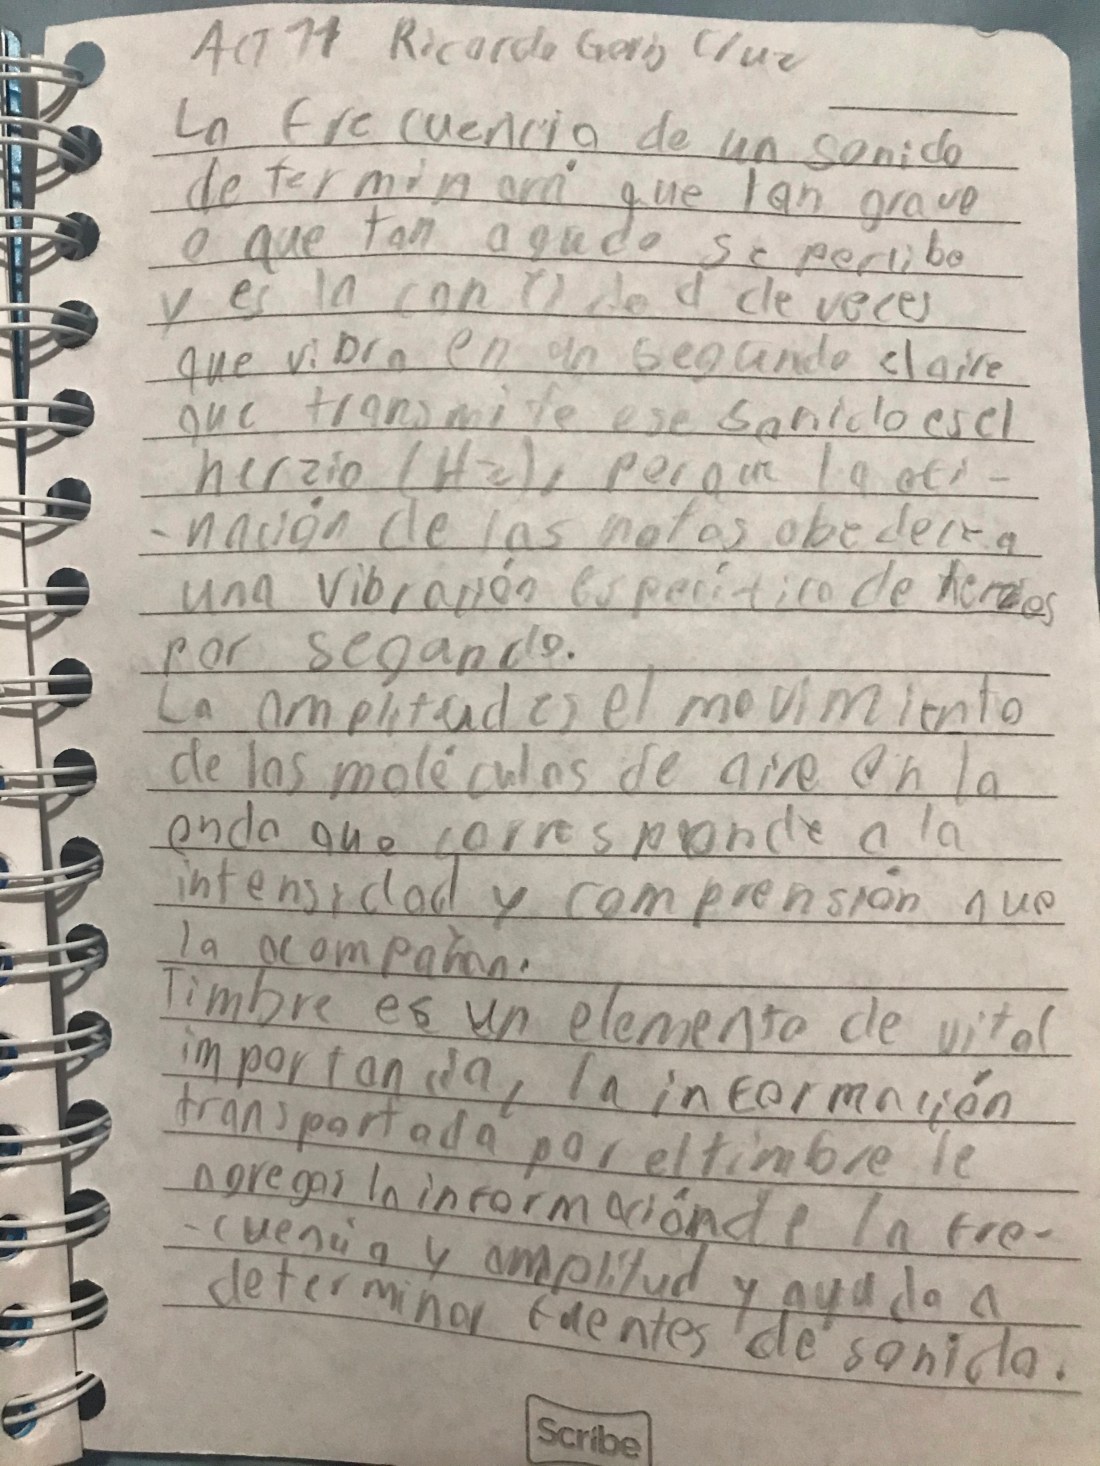 Act 11 Ricardo Cruz
La frecuencia de un sonido
determinará que tan grave
o que tan agudo se percibe
y es la cantidad de veces
que vibra en un segundo el aire
que transmite ese sonido es el
herzio (Hz), porque la
-nación de las notas obedece a
una vibración específico de
por segundo.
La amplitud es el movimiento
de las moléculas de aire en la
onda que corresponde a la
intensidad y comprensión que
la acompañan.
Timbre es un elemento de vital
importancia, la información
transportada por el timbre le
agregas la información de la fre-
-cuencia y amplitud y ayuda a
determinar fuentes de sonido.
Scribe